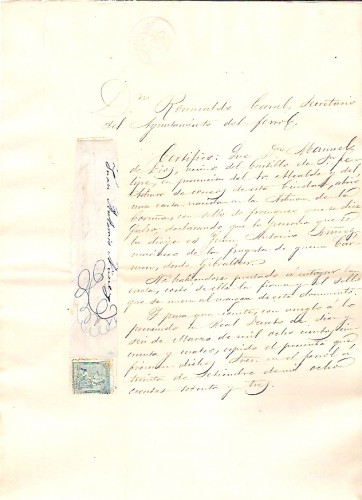 Dn Romualdo Canel, Secretario
del Ayuntamiento del Ferrol.
Certifico: Que Dn Manuel
de vecino del Castillo de Sn Fe
lipe, en presencia del Sr Alcalde y del
de correos de esta Ciudad, abrió
una carta venida en la
Coruña, con sello de franqueo que se dice
declarando que la persona que se
la dirije es Juan Antonio
marinero de la fragata de guerra Car
men, desde Gibraltar.
No habiéndose prestado á entregar la
carta, corto de ella la firma y el sello
que se unen al margen de este documento.
Y para que conste, con arreglo á lo
prevenido en Real Decreto de diez y
seis de Marzo de mil ocho cientos cin
cuenta y cuatro, espido el presente que
firman dichos Sres en el Ferrol á
treinta de Setiembre de mil ocho
cientos setenta y tres.
Juan Antonio